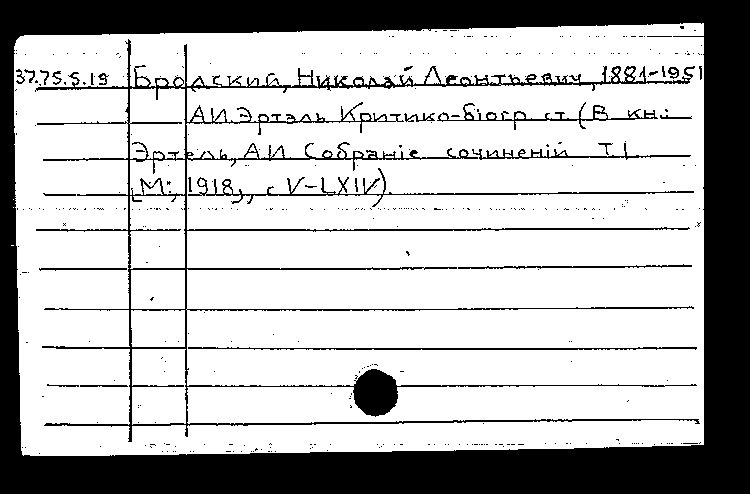 37.75.5.19 Бродский, Николай Леонтьевич, 1881-1951
А.И. Эртель Критико-біогр ст (В кн.:
Эртель, А.И. Собраніе сочиненій Т. I
[М:, 1918], с V-LXIV).